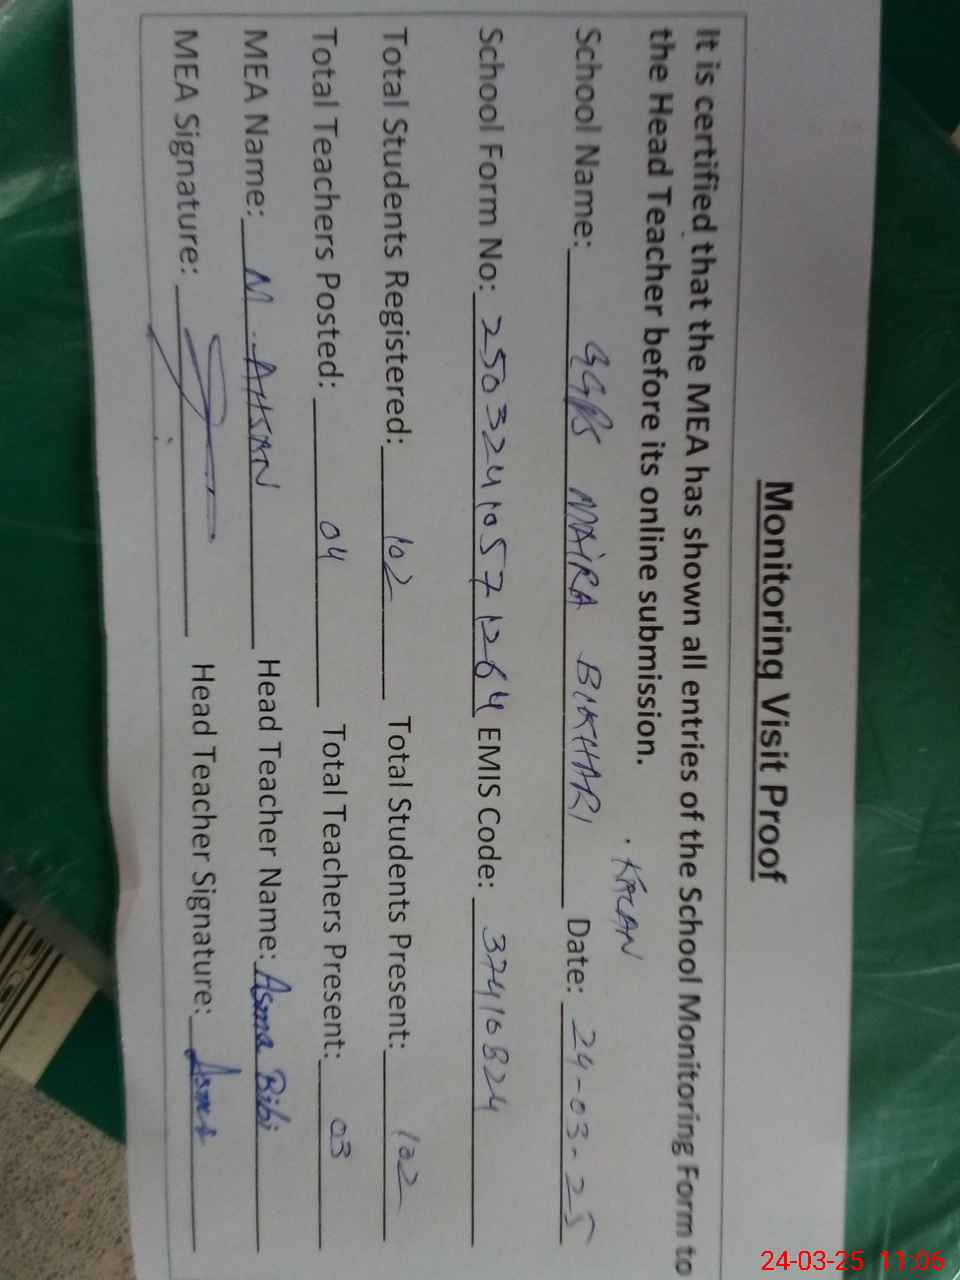 Monitoring Visit Proof
It is certified that the MEA has shown all entries of the School Monitoring Form to
the Head Teacher before its online submission.
. KALAN
School Name: GGPS MAIRA BIKHARI Date: 24-03-25
School Form No: 25032410571264 EMIS Code: 37410824
Total Students Registered: 102 Total Students Present: 102
Total Teachers Posted: 04 Total Teachers Present: 03
MEA Name: M. AHSAN Head Teacher Name: Asma Bibi
MEA Signature: Head Teacher Signature: Asma
24-03-25 11:06